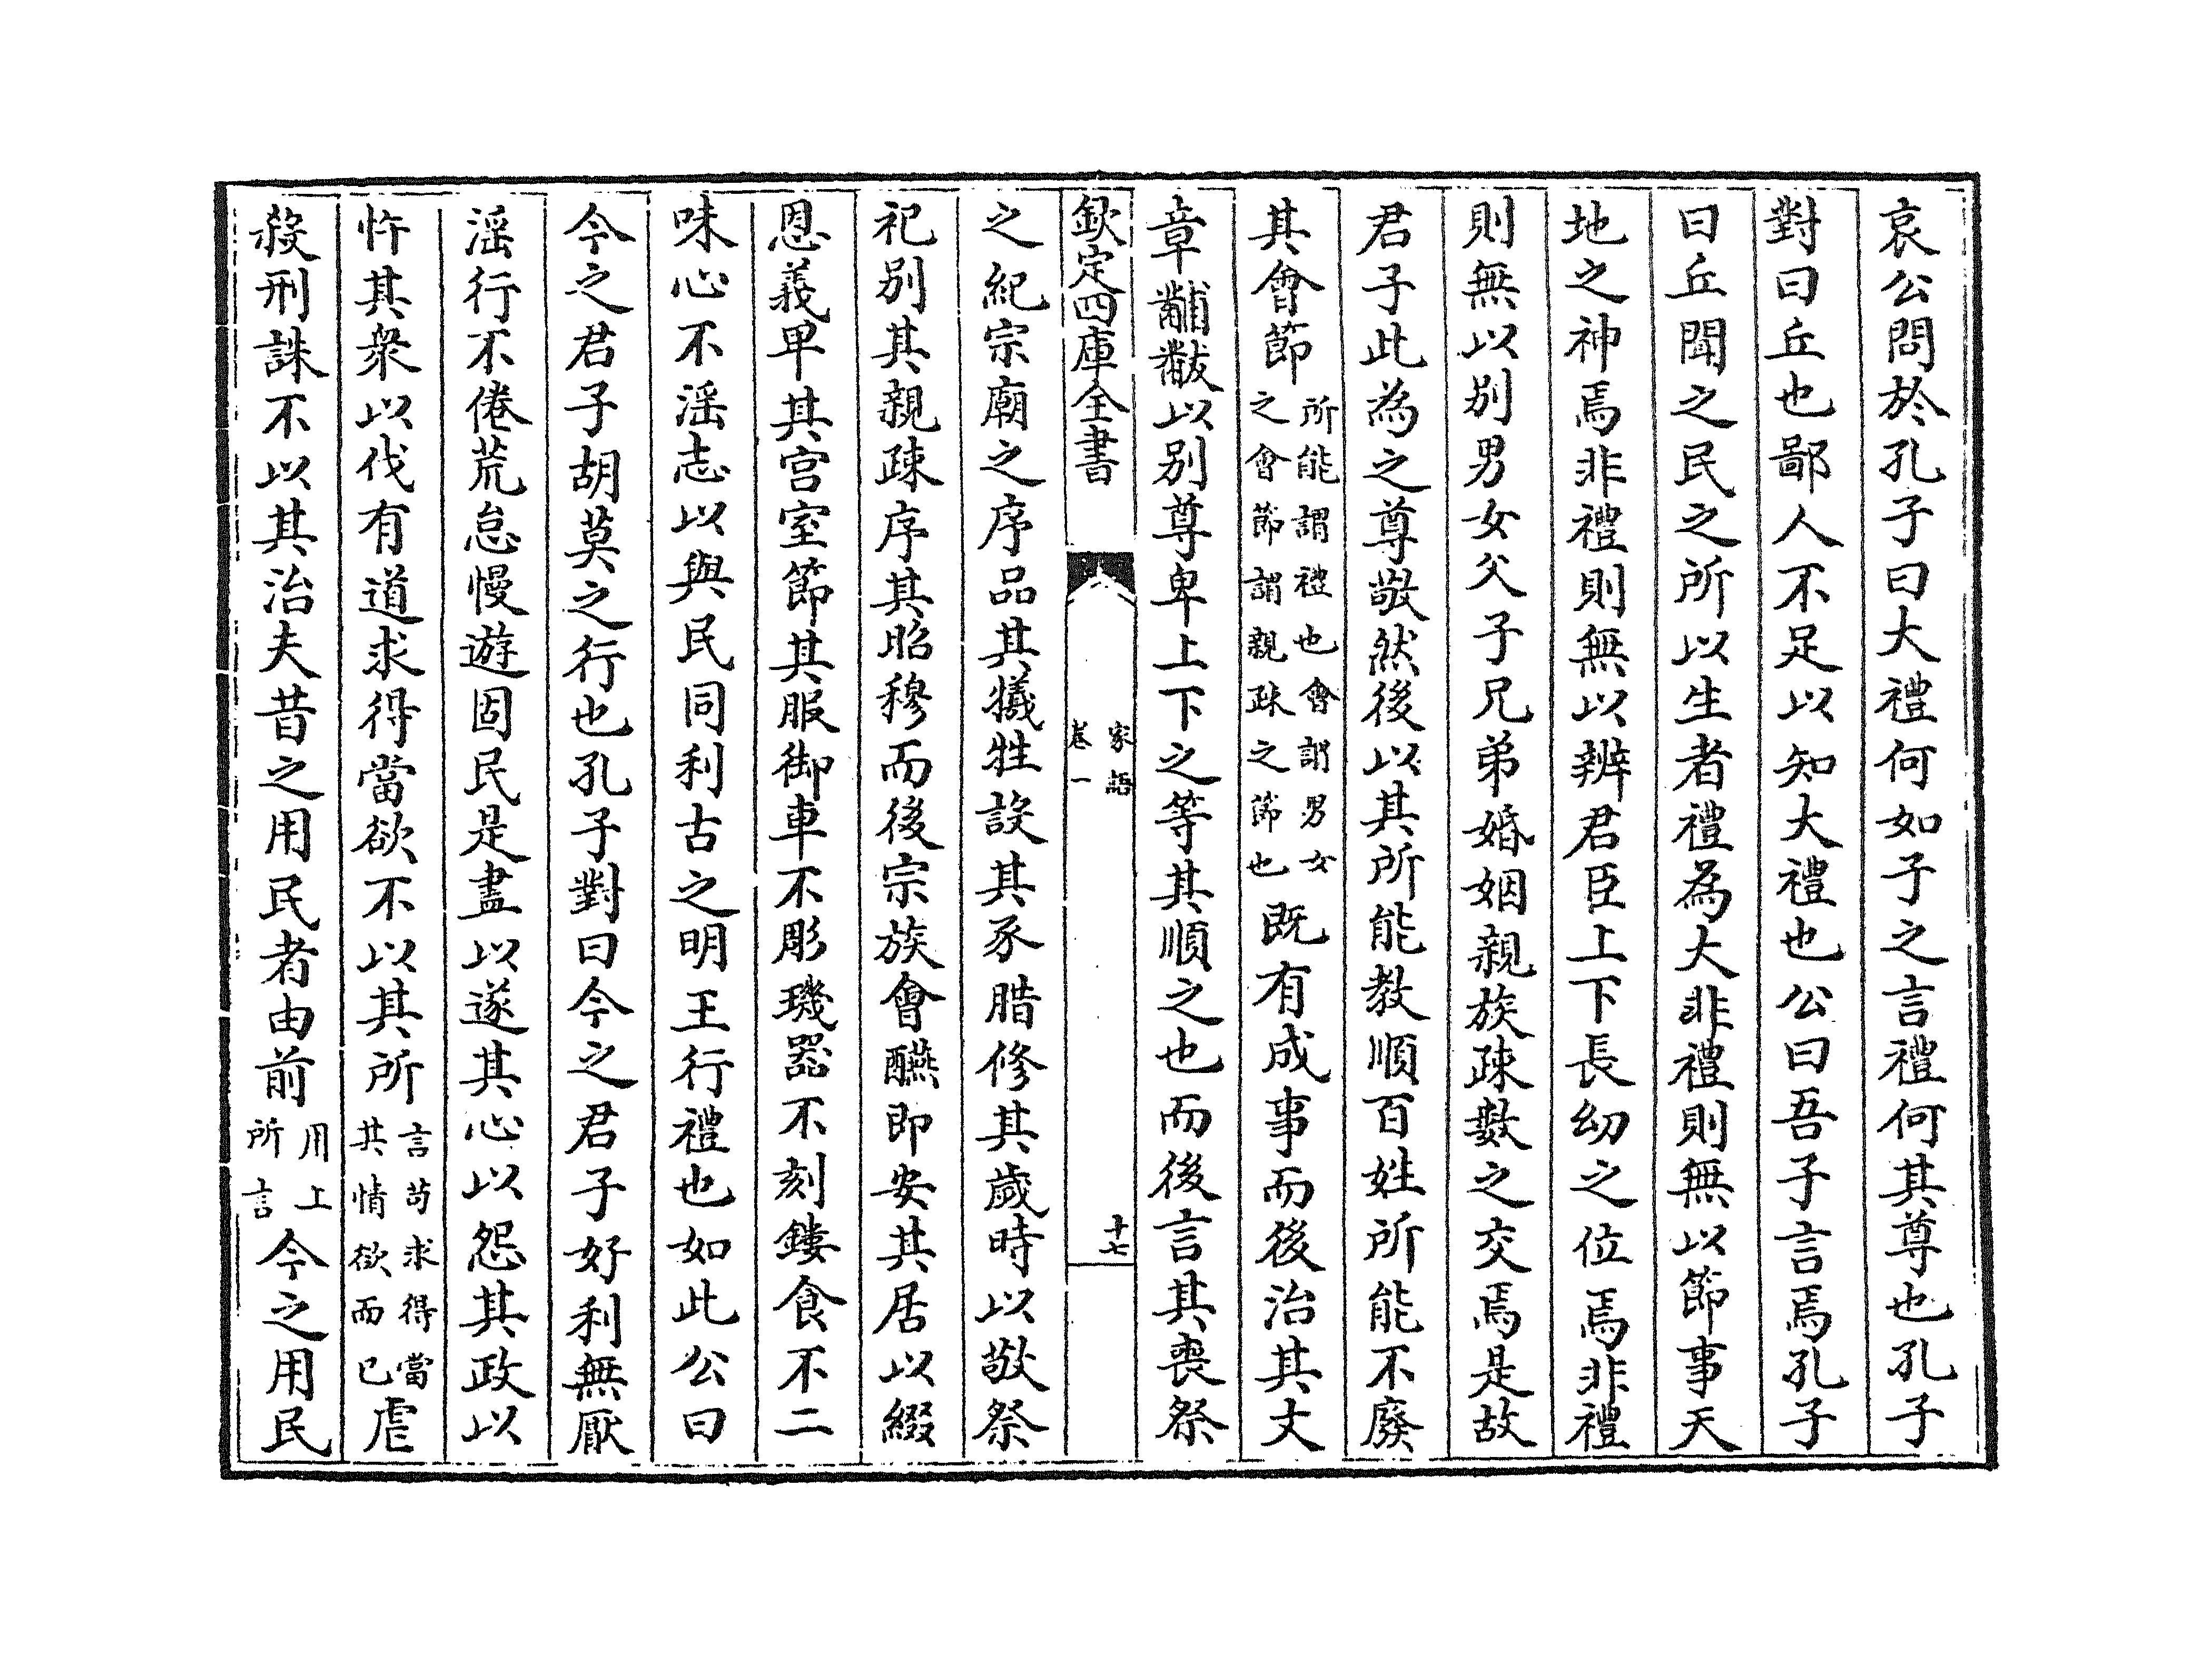 哀公問於孔子曰大禮何如子之言禮何其尊也孔子
對曰丘也鄙人不足以知大禮也公曰吾子言焉孔子
曰丘聞之民之所以生者禮為大非禮則無以節事天
地之神焉非禮則無以辨君臣上下長幼之位焉非禮
則無以別男女父子兄弟婚姻親族疎數之交焉是故
君子此為之尊敬然後以其所能教順百姓所能不廢
其會節所能謂禮也會謂男女之會節謂親疎之節也既有成事而後治其文
章黼黻以別尊卑上下之等其順之也而後言其喪祭
欽定四庫全書
家語
卷一
十七
之紀宗廟之序品其犧牲設其豕腊修其歲時以敬祭
祀別其親疎序其昭穆而後宗族會醼即安其居以綴
恩義卑其宮室節其服御車不彫璣器不刻鏤食不二
味心不淫志以與民同利古之明王行禮也如此公曰
今之君子胡莫之行也孔子對曰今之君子好利無厭
淫行不倦荒怠慢遊固民是盡以遂其心以怨其政以
忤其衆以伐有道求得當欲不以其所言苟求得當其情欲而已虐
殺刑誅不以其治夫昔之用民者由前用上所言今之用民